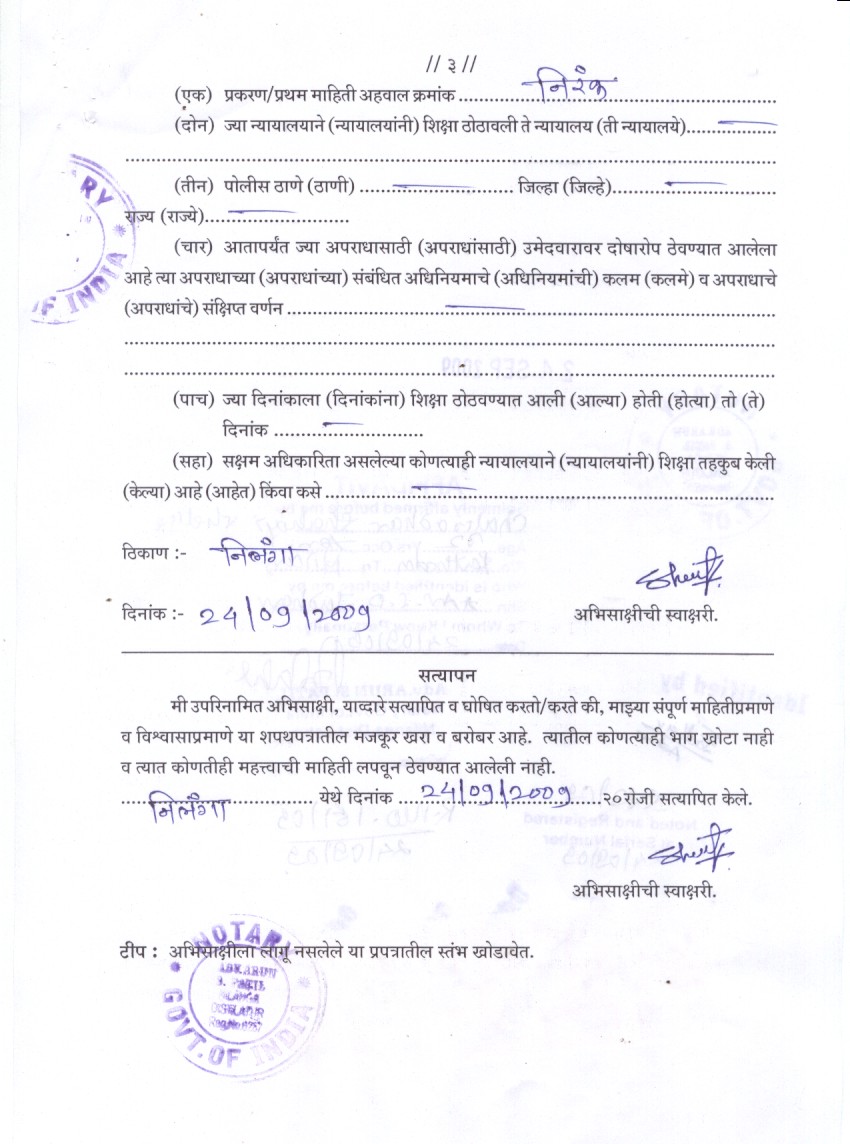 // ३ //
(एक) प्रकरण/प्रथम माहिती अहवाल क्रमांक ........ निरंक
(दोन) ज्या न्यायालयाने (न्यायालयांनी) शिक्षा ठोठावली ते न्यायालय (ती न्यायालये)........
(तीन) पोलीस ठाणे (ठाणी) ........ जिल्हा (जिल्हे)........
राज्य (राज्ये)........
(चार) आतापर्यंत ज्या अपराधासाठी (अपराधांसाठी) उमेदवारावर दोषारोप ठेवण्यात आलेला
आहे त्या अपराधाच्या (अपराधांच्या) संबंधित अधिनियमाचे (अधिनियमांची) कलम (कलमे) व अपराधाचे
(अपराधांचे) संक्षिप्त वर्णन ........
(पाच) ज्या दिनांकाला (दिनांकांना) शिक्षा ठोठवण्यात आली (आल्या) होती (होत्या) तो (ते)
दिनांक ........
(सहा) सक्षम अधिकारिता असलेल्या कोणत्याही न्यायालयाने (न्यायालयांनी) शिक्षा तहकुब केली
(केल्या) आहे (आहेत) किंवा कसे ........
ठिकाण :- निलंगा
दिनांक :- 24/09/2009
अभिसाक्षीची स्वाक्षरी.
सत्यापन
मी उपरिनामित अभिसाक्षी, याव्दारे सत्यापित व घोषित करतो/करते की, माझ्या संपूर्ण माहितीप्रमाणे
व विश्वासाप्रमाणे या शपथपत्रातील मजकूर खरा व बरोबर आहे. त्यातील कोणत्याही भाग खोटा नाही
व त्यात कोणतीही महत्त्वाची माहिती लपवून ठेवण्यात आलेली नाही.
निलंगा येथे दिनांक 24/09/2009 २०रोजी सत्यापित केले.
अभिसाक्षीची स्वाक्षरी.
टीप : अभिसाक्षीला लागू नसलेले या प्रपत्रातील स्तंभ खोडावेत.
NOTARY
GOVT. OF INDIA